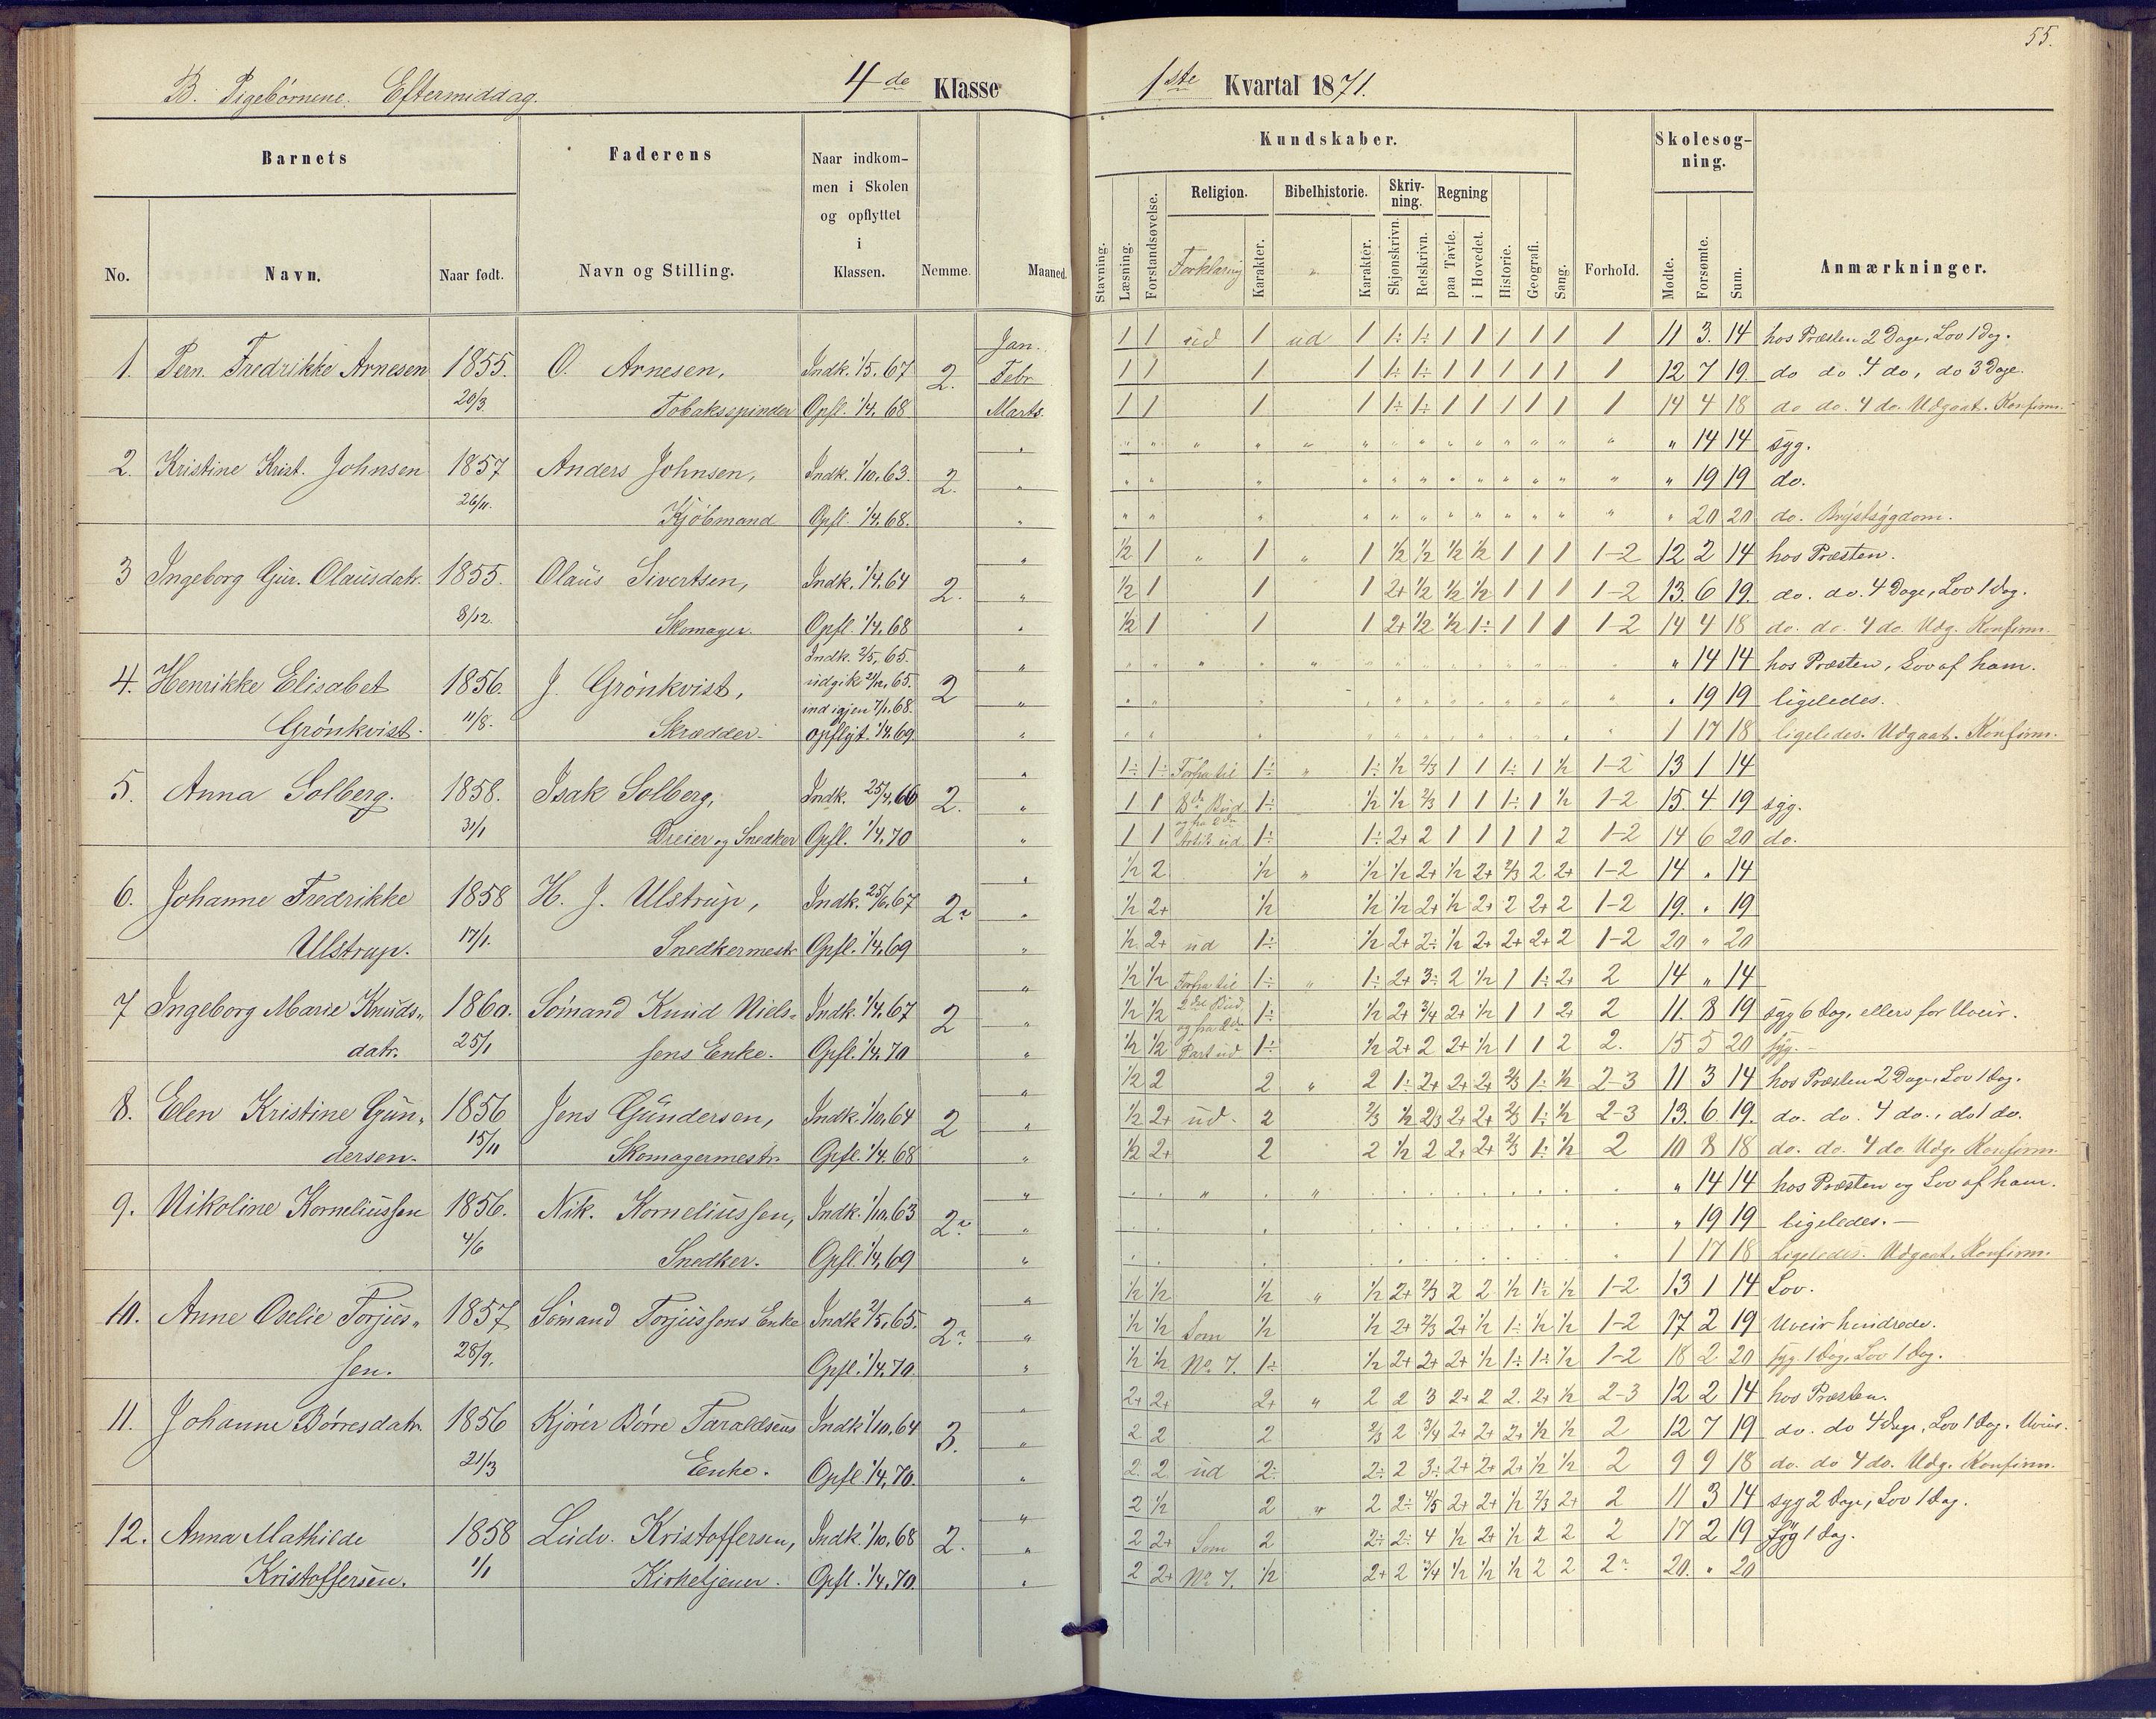 55.
B. Pigebørnene. Eftermiddag. 4de Klasse 1ste Kvartal 1871.
Barnets Faderens Naar indkom-men i Skolen og opflyttet i Klassen. Nemme. Maaned. Kundskaber. Forhold. Skolesøg-ning. Anmærkninger.
No. Navn. Naar født. Navn og Stilling.
Stavning. Læsning. Forstandsøvelse. Religion. Forklaring Karakter. Bibelhistorie. " Karakter. Skriv-ning. Skjønskrivn. Retskrivn. Regning paa Tavle. i Hovedet. Historie. Geografi. Sang. Mødte. Forsømte. Sum.
Jan. 1 1 ud 1 ud 1 1÷ 1÷ 1 1 1 1 1 1 11 3. 14 hos Præsten 2 Dage, Lov 1 Dag.
1. Pern. Fredrikke Arnesen 1855. O. Arnesen, Indk. 1/5. 67 2. Febr 1 1 1 1 1÷ 1÷ 1 1 1 1 1 1 12 7 19. do do 4 do, do 3 Dage.
20/3 Tobaksspinder Opfl. 1/4. 68 Marts. 1 1 1 1 1÷ 1÷ 1 1 1 1 1 1 14 4 18 do do. 4 do. Udgaat. Konfirm.
" 14 14 syg.
2. Kristine Krist. Johnsen 1857 Anders Johnsen, Indk. 1/10. 63. 2. " " 19 19 do.
26/11. Kjøbmand Opfl. 1/4. 68. " " 20 20 do. Brystsygdom.
" 1/2 1 " 1 " 1 1/2 1/2 1/2 1/2 1 1 1 1-2 12 2 14 hos Præsten.
3 Ingeborg Gur. Olausdatr. 1855. Olaus Sivertsen, Indk. 1/4. 64 2. " 1/2 1 1 1 2+ 1/2 1/2 1/2 1 1 1 1-2 13. 6 19. do. do. 4 Dage, Lov 1 Dag.
8/12. Skomager. Opfl. 1/4. 68 " 1/2 1 1 1 2+ 1/2 1/2 1÷ 1 1 1 1-2 14 4 18 do. do. 4 do. Udg. Konfirm.
Indk. 2/5. 65. " " 14 14 hos Præsten, Lov af ham.
4. Henrikke Elisabet 1856. J. Grönkvist, udgik 21/12. 65. 2 " " 19 19 ligeledes.
ind igjen 7/1. 68.
Grönkvist. 11/8. Skrædder. opflyt. 1/4. 69. " 1 17 18 ligeledes. Udgaat. Konfirm.
" 1÷ 1÷ Forfra til 1÷ " 1÷ 1/2 2/3 1 1 1÷ 1 1/2 1-2 13 1 14
5. Anna Solberg. 1858. Isak Solberg, Indk. 25/4. 66 2. " 1 1 8de Bud 1÷ 1/2 1/2 2/3 1 1 1÷ 1 1/2 1-2 15. 4 19 syg.
31/1 Dreier og Snedker Opfl. 1/4. 70 " 1 1 og fra 2den Artik. ud 1÷ 1÷ 2+ 2 1 1 1 1 2 1-2 14 6 20 do.
" 1/2 2 1/2 " 1/2 1/2 2+ 1/2 2+ 2/3 2 2+ 1-2 14 " 14
6. Johanne Fredrikke 1858 H. J. Ulstrup, Indk. 25/6. 67 2? " 1/2 2+ 1/2 1/2 1/2 2+ 1/2 2+ 2 2+ 2 1-2 19. " 19
Ulstrup. 17/1. Snedkermestr Opfl. 1/4. 69 " 1/2 2+ ud 1÷ 1/2 2+ 2÷ 1/2 2+ 2+ 2+ 2 1-2 20 " 20
" 1/2 1/2 Forfra til 1÷ " 1÷ 2+ 3÷ 2 1/2 1 1÷ 2+ 2 14 " 14
7 Ingeborg Marie Knuds" 1860. Sömand Knud Niels- Indk. 1/4. 67 2 " 1/2 1/2 2det Bud 1÷ 1/2 2+ 3/4 2+ 1/2 1 1 2+ 2 11. 8 19 syg 6 Dag, ellers for Uveir.
datr. 25/1 sens Enke. Opfl. 1/4. 70 " 1/2 1/2 og fra 2den Part ud 1÷ 1/2 2+ 2 2+ 1/2 1 1 2 2. 15 5 20 syg. –
" 1/2 2 2 " 2 1÷ 2+ 2+ 2+ 2/3 1÷ 1/2 2-3 11 3 14 hos Præsten 2 Dage, Lov 1 Dag.
8. Elen Kristine Gun" 1856 Jens Gundersen, Indk. 1/10. 64 2 " 1/2 2+ ud. 2 2/3 1/2 2/3 2+ 2+ 2/3 1÷ 1/2 2-3 13. 6. 19. do. do. 4 do., do 1 do.
dersen. 15/11 Skomagermestr. Opfl. 1/4. 68 " 1/2 2+ 2 2 1/2 2 2+ 2+ 2/3 1÷ 1/2 2 10 8 18 do. do. 4 do Udg. Konfirm.
" " 14 14 hos Præsten og Lov af ham.
9. Nikoline Korneliussen 1856. Nik. Korneliussen, Indk. 1/10. 63 2? " " 19 19 ligeledes. –
4/6 Snedker. Opfl. 1/4. 69 " 1 17 18 Ligeledes. Udgaat. Konfirm.
" 1/2 1/2 1/2 " 1/2 2+ 2/3 2 2 1/2 1÷ 1/2 1-2 13 1 14 Lov.
10. Anne Oselie Torjus" 1857 Sömand Torjussens Enke Indk. 2/5. 65. 2? " 1/2 1/2 Som 1/2 1/2 2+ 2/3 2+ 1/2 1÷ 1/2 1/2 1-2 17 2 19 Uveir hindrede.
sen. 28/9. Opfl. 1/4. 70. " 1/2 1/2 No. 7. 1÷ 1/2 2+ 2+ 2+ 1/2 1÷ 1÷ 1/2 1-2 18 2 20 syg. 1 Dag, Lov 1 Dag.
" 2+ 2+ 2+ " 2 2 3 2+ 2 2. 2+ 1/2 2-3 12 2 14 hos Præsten.
11. Johanne Börresdatr. 1856 Kjörer Börre Taraldsens Indk 1/10. 64 3. " 2 2 2 2/3 2 3/4 2+ 2+ 2+ 1/2 1/2 2 12 7 19 do. do 4 Dage, Lov 1 Dag. Uveir.
21/3 Enke. Opfl 1/4. 70. " 2 2 ud 2÷ 2÷ 2 3÷ 2+ 2+ 2+ 1/2 1/2 2 9 9 18 do. do 4 do. Udg. Konfirm.
" 2 1/2 2 " 2 2÷ 4/5 2+ 2+ 1/2 2/3 2+ 2 11 3 14 syg 2 Dage, Lov 1 Dag.
12. Anna Mathilde 1858 Ludv. Kristoffersen, Indk. 1/10. 68 2. " 2 2+ Som 2 2÷ 2÷ 4 1/2 2+ 1/2 2 2 2 17 2 19 Syg 1 Dag.
Kristoffersen. 1/1 Kirketjener. Opfl. 1/4. 70. " 2 2+ No. 7. 1/2 2+ 2 3/4 1/2 1/2 1/2 2 2 2? 20. " 20